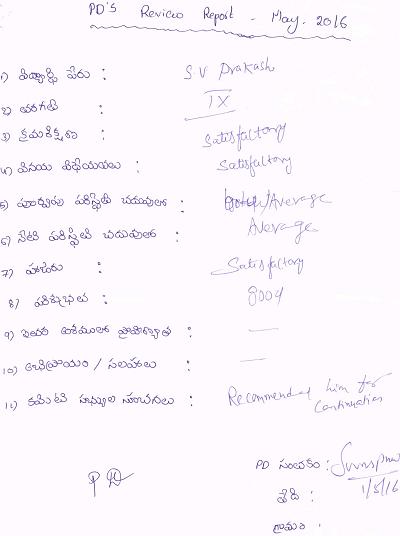 PD'S Review Report - May. 2016
1) విద్యార్థి పేరు : S V Prakash
2) తరగతి : IX
3) క్రమశిక్షణ : Satisfactory
4) వినయ విధేయతలు : Satisfactory
5) పూర్వపు పరిస్థితి చదువులో : /Average
6) నేటి పరిస్థితి చదువులో : Average
7) హాజరు : Satisfactory
8) పరీక్షలు : Good
9) ఇతర అంశములలో : —
10) అభిప్రాయం / సలహాలు : —
11) కమిటి సభ్యుల సూచనలు : Recommended him for
Continuation
PD
PD సంతకం :
1/5/16
తేది :
గ్రామం :